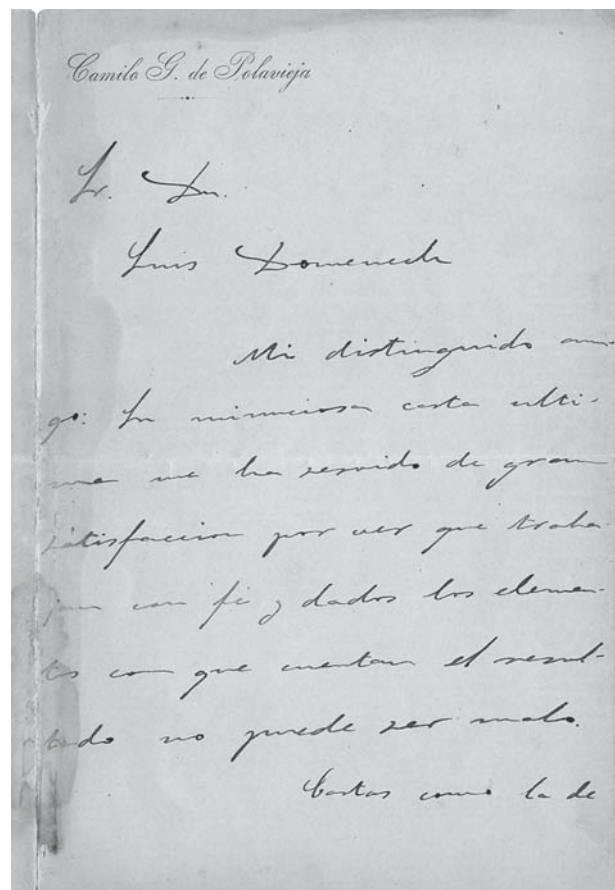 Camilo G. de Polavieja
Sr. Dn.
Luis Domenech
Mi distinguido ami-
go: Su minuciosa carta ulti-
ma me ha servido de gran
satisfaccion por ver que traba-
jan con fé y dados los elemen-
tos con que cuentan el resul-
tado no puede ser malo.
Cartas como la de